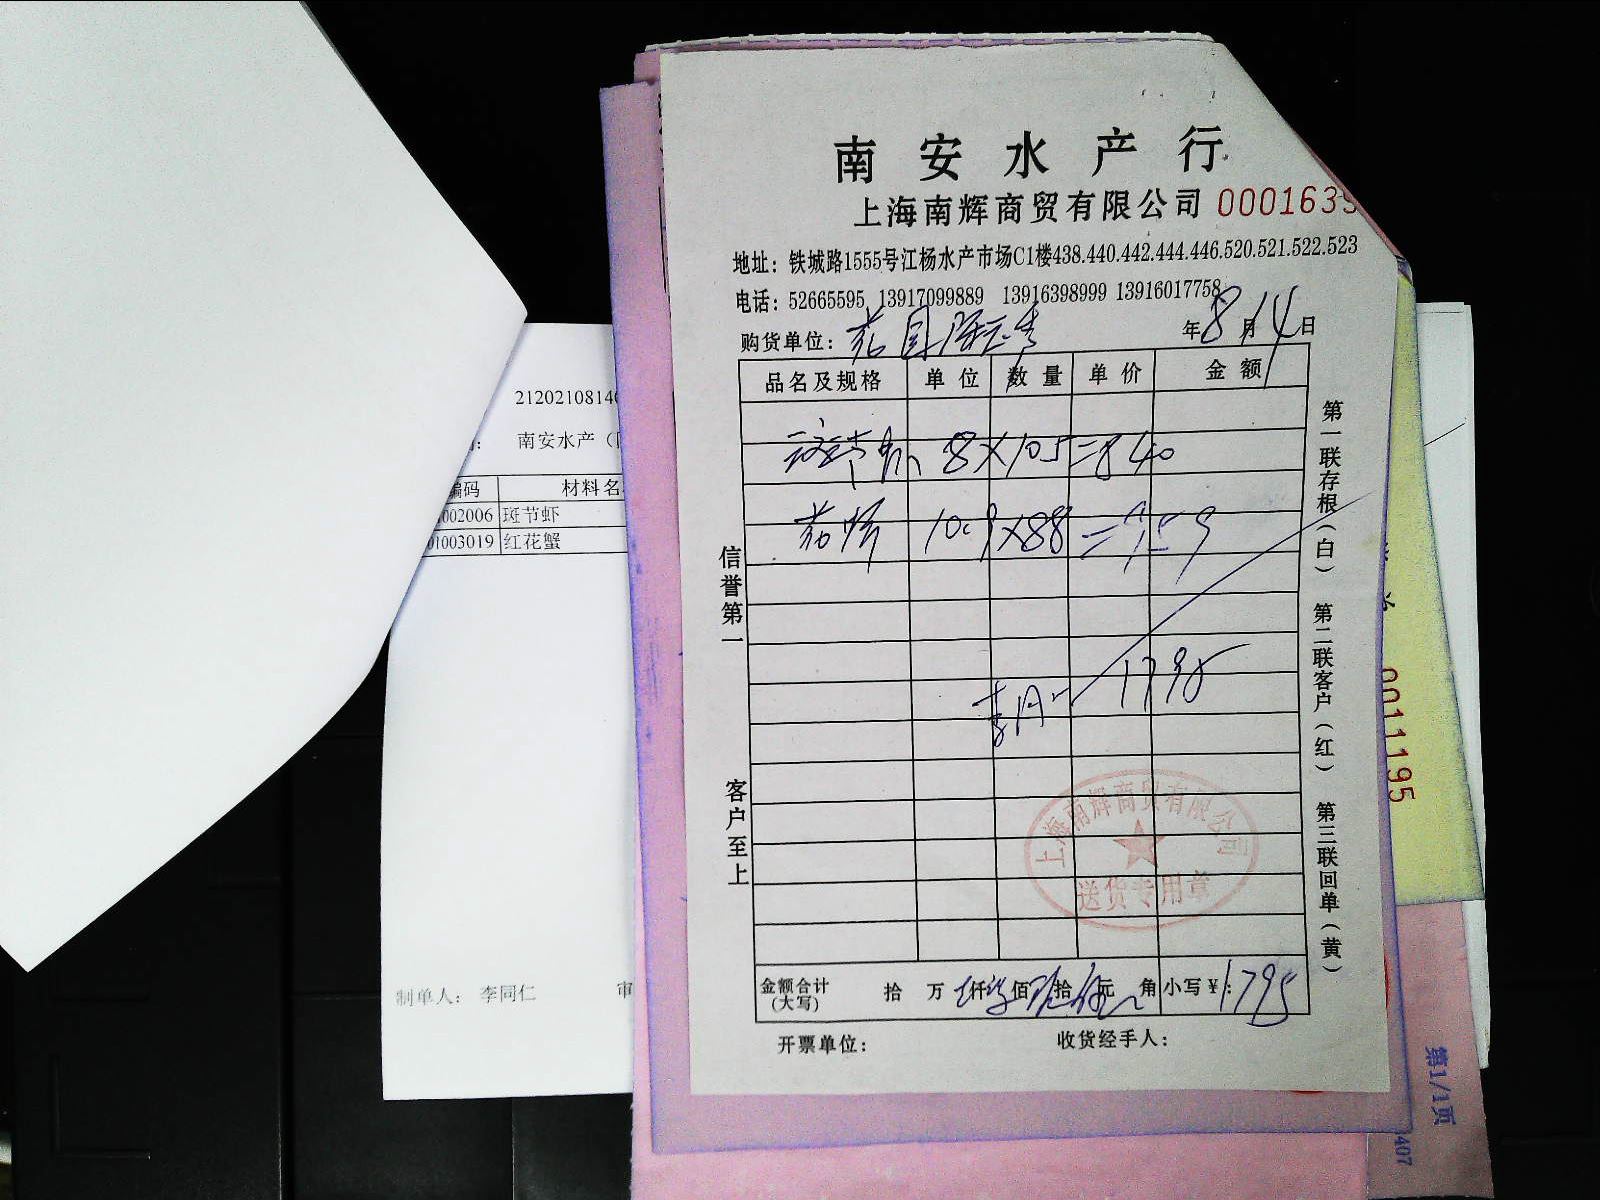 南安水产行
上海南辉商贸有限公司 0001639
地址：铁城路1555号江杨水产市场C1楼438.440.442.444.446.520.521.522.523
电话：52665595 13917099889 13916398999 13916017758
购货单位： 年8月14日
品名及规格 单位 数量 单价 金额
8×105=840
10.9×88=959
1795
信誉第一
客户至上
第一联存根（白） 第二联客户（红） 第三联回单（黄）
上海南辉商贸有限公司
送货专用章
金额合计（大写） 拾 万 仟 佰 拾 元 角 小写¥：1795
开票单位： 收货经手人：
21202108140
南安水产（
编码 材料名
002006 斑节虾
01003019 红花蟹
制单人：李同仁 审
0011195
第1/1页
407